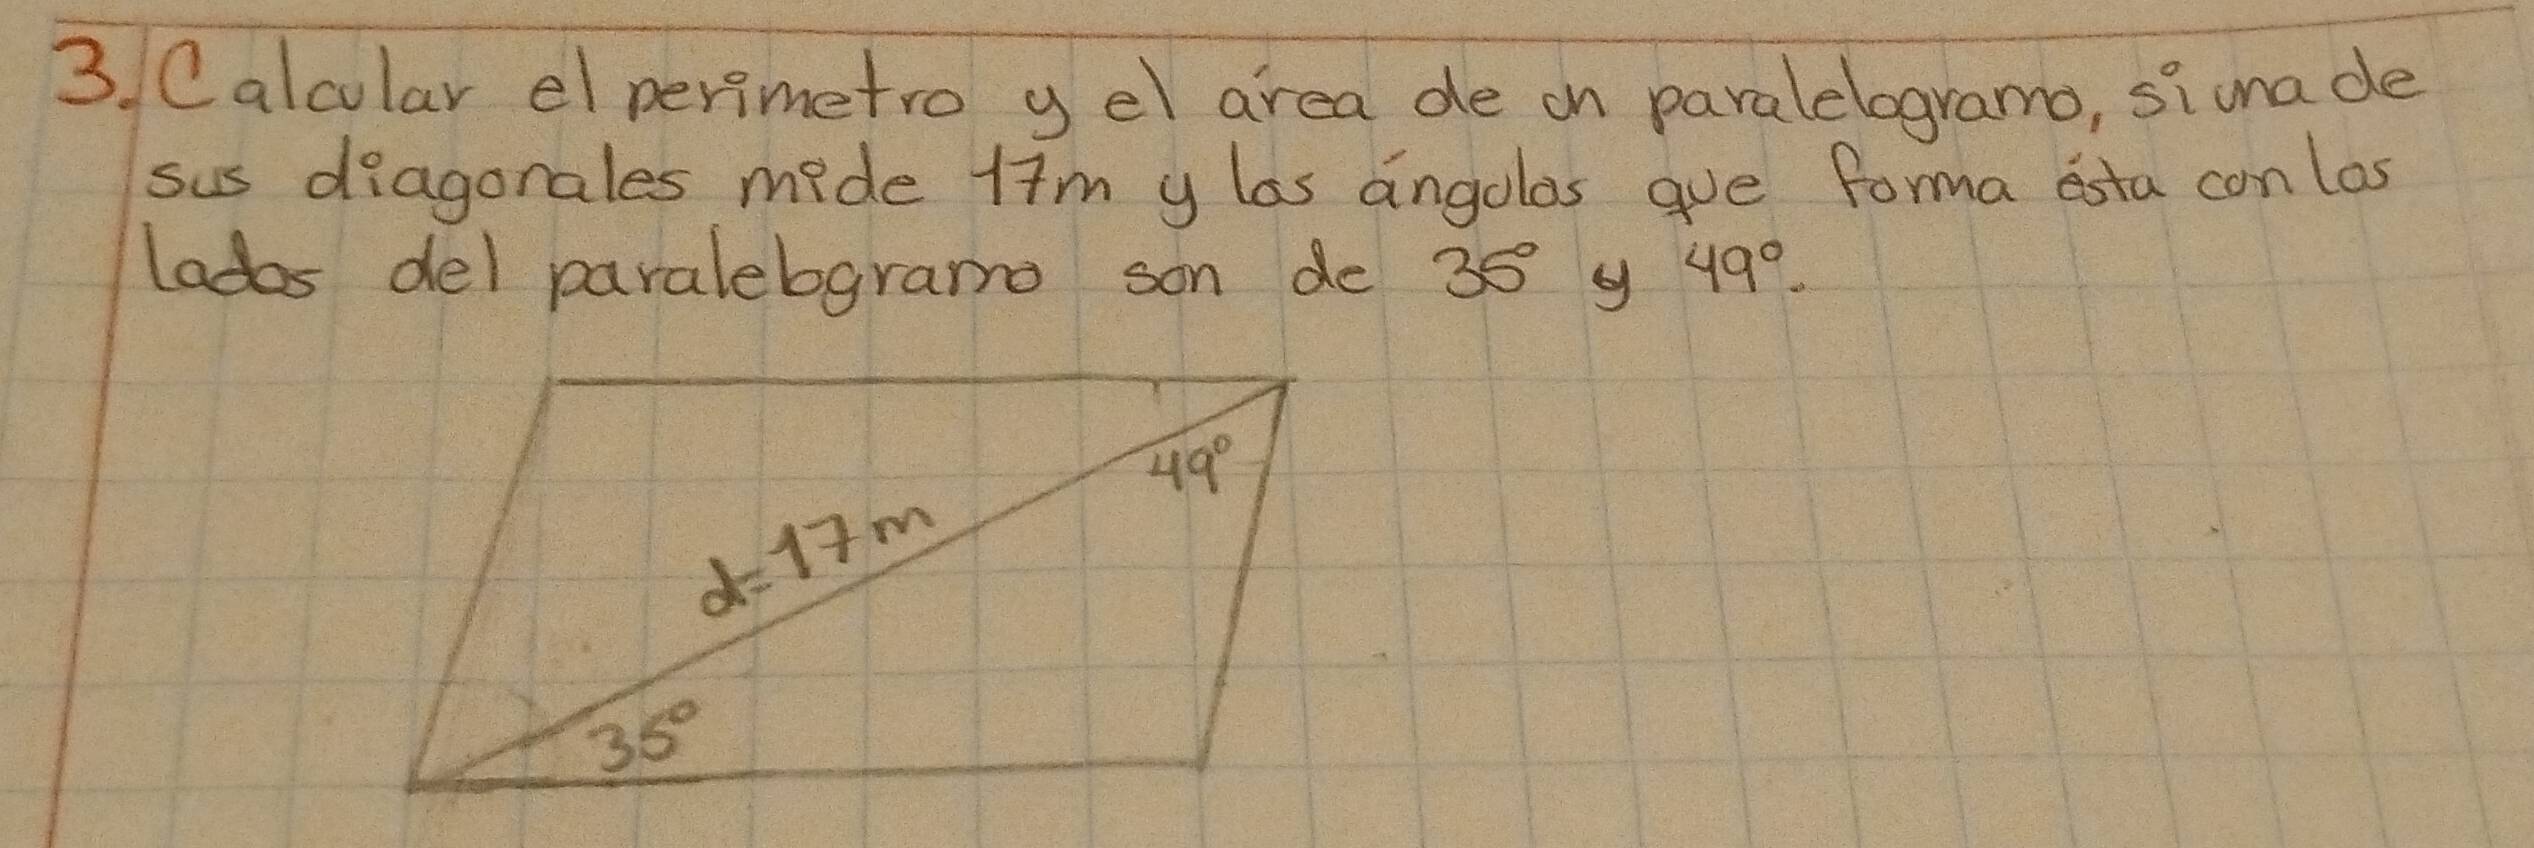 3. Calcular el perimetro y el área de un paralelogramo, si una de
sus diagonales mide 17m y los ángulos que forma ésta con los
lados del paralelogramo son de 35° y 49°.
49°
d=17m
35°